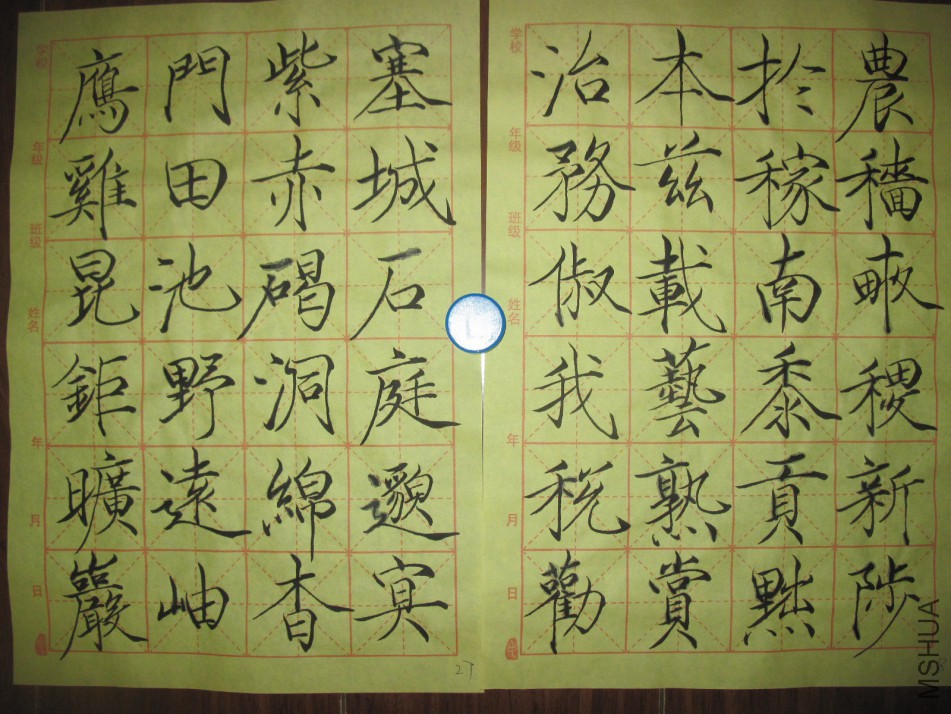 鴈門紫塞
雞田赤城
昆池碣石
鉅野洞庭
曠遠綿邈
巖岫杳冥
27
治本於農
務茲稼穡
俶載南畝
我藝黍稷
稅熟貢新
勸賞黜陟
学校
年级
班级
姓名
年
月
日
学校
年级
班级
姓名
年
月
日
MSHUA